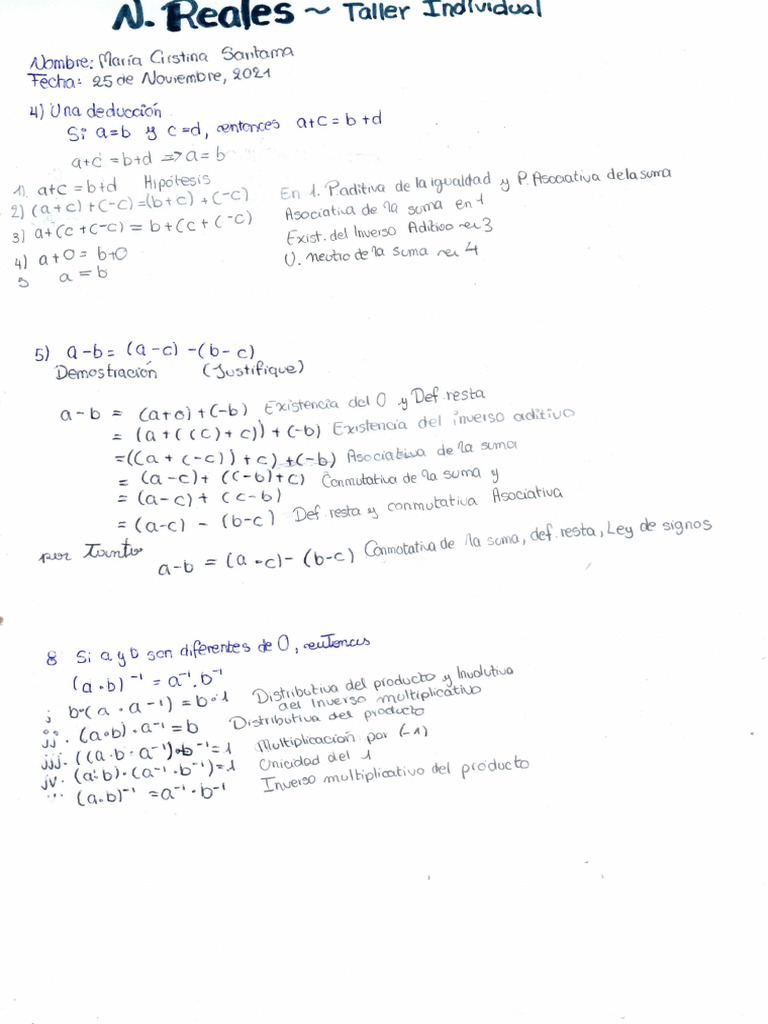 N. Reales ~ Taller Individual
Nombre: María Cristina Santama
Fecha: 25 de Noviembre, 2021
4) Una deducción
Si a=b y c=d, entonces a+c = b+d
a+c = b+d => a = b
1) a+c = b+d Hipótesis
2) (a+c)+(-c)=(b+c)+(-c) En 1. P.aditiva de la igualdad y P. Asociativa de la suma
3) a+(c+(-c) = b+(c+(-c) Asociativa de la suma en 1
4) a+0 = b+0 Exist. del Inverso Aditivo en 3
5 a = b U. neutro de la suma en 4
5) a-b = (a-c) -(b-c)
Demostración (Justifique)
a-b = (a+0)+(-b) Existencia del 0 y Def. resta
= (a+((c)+c))+(-b) Existencia del inverso aditivo
=((a+(-c))+c)+(-b) Asociativa de la suma
= (a-c)+ ((-b)+c) Conmutativa de la suma y
= (a-c)+ (c-b)
= (a-c) - (b-c) Def resta y conmutativa Asociativa
por tanto
a-b = (a-c)-(b-c) Conmotativa de la suma, def. resta, Ley de signos
8 Si a y b son diferentes de 0, entonces
(a·b)⁻¹ = a⁻¹. b⁻¹
j b·(a · a-1) = b·1 Distributiva del producto y Involutiva
del Inverso multiplicativo
jj. (a·b)·a⁻¹=b Distributiva del producto
jjj. ((a·b·a⁻¹)·b⁻¹=1 Multiplicación por (-1)
jv. (a·b)·(a⁻¹·b⁻¹)=1 Unicidad del 1
... (a·b)⁻¹ =a⁻¹·b⁻¹ Inverso multiplicativo del producto